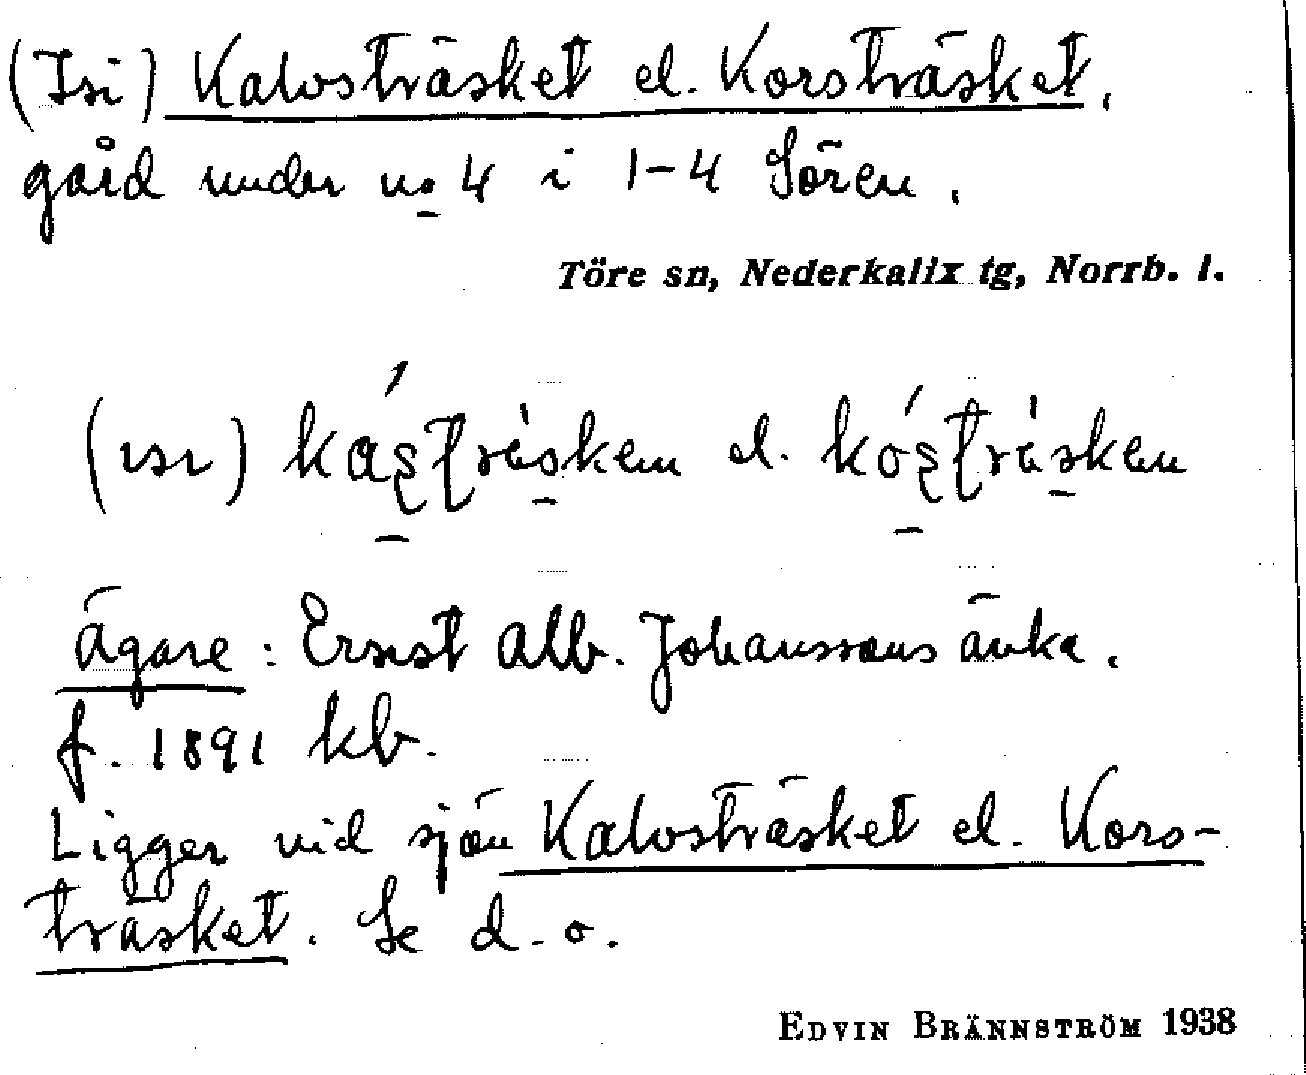 (Isi) Kalvsträsket el. Korsträsket,
gård under no 4 i 1-4 Sören.
Töre sn, Nederkalix tg, Norrb. l.
el.
ägare: Ernst Alb. Johanssons änka.
f. 1891 kb.
Ligger vid sjön Kalvsträsket el. Kors-
träsket. Se d. o.
EDVIN BRÄNNSTRÖM 1938